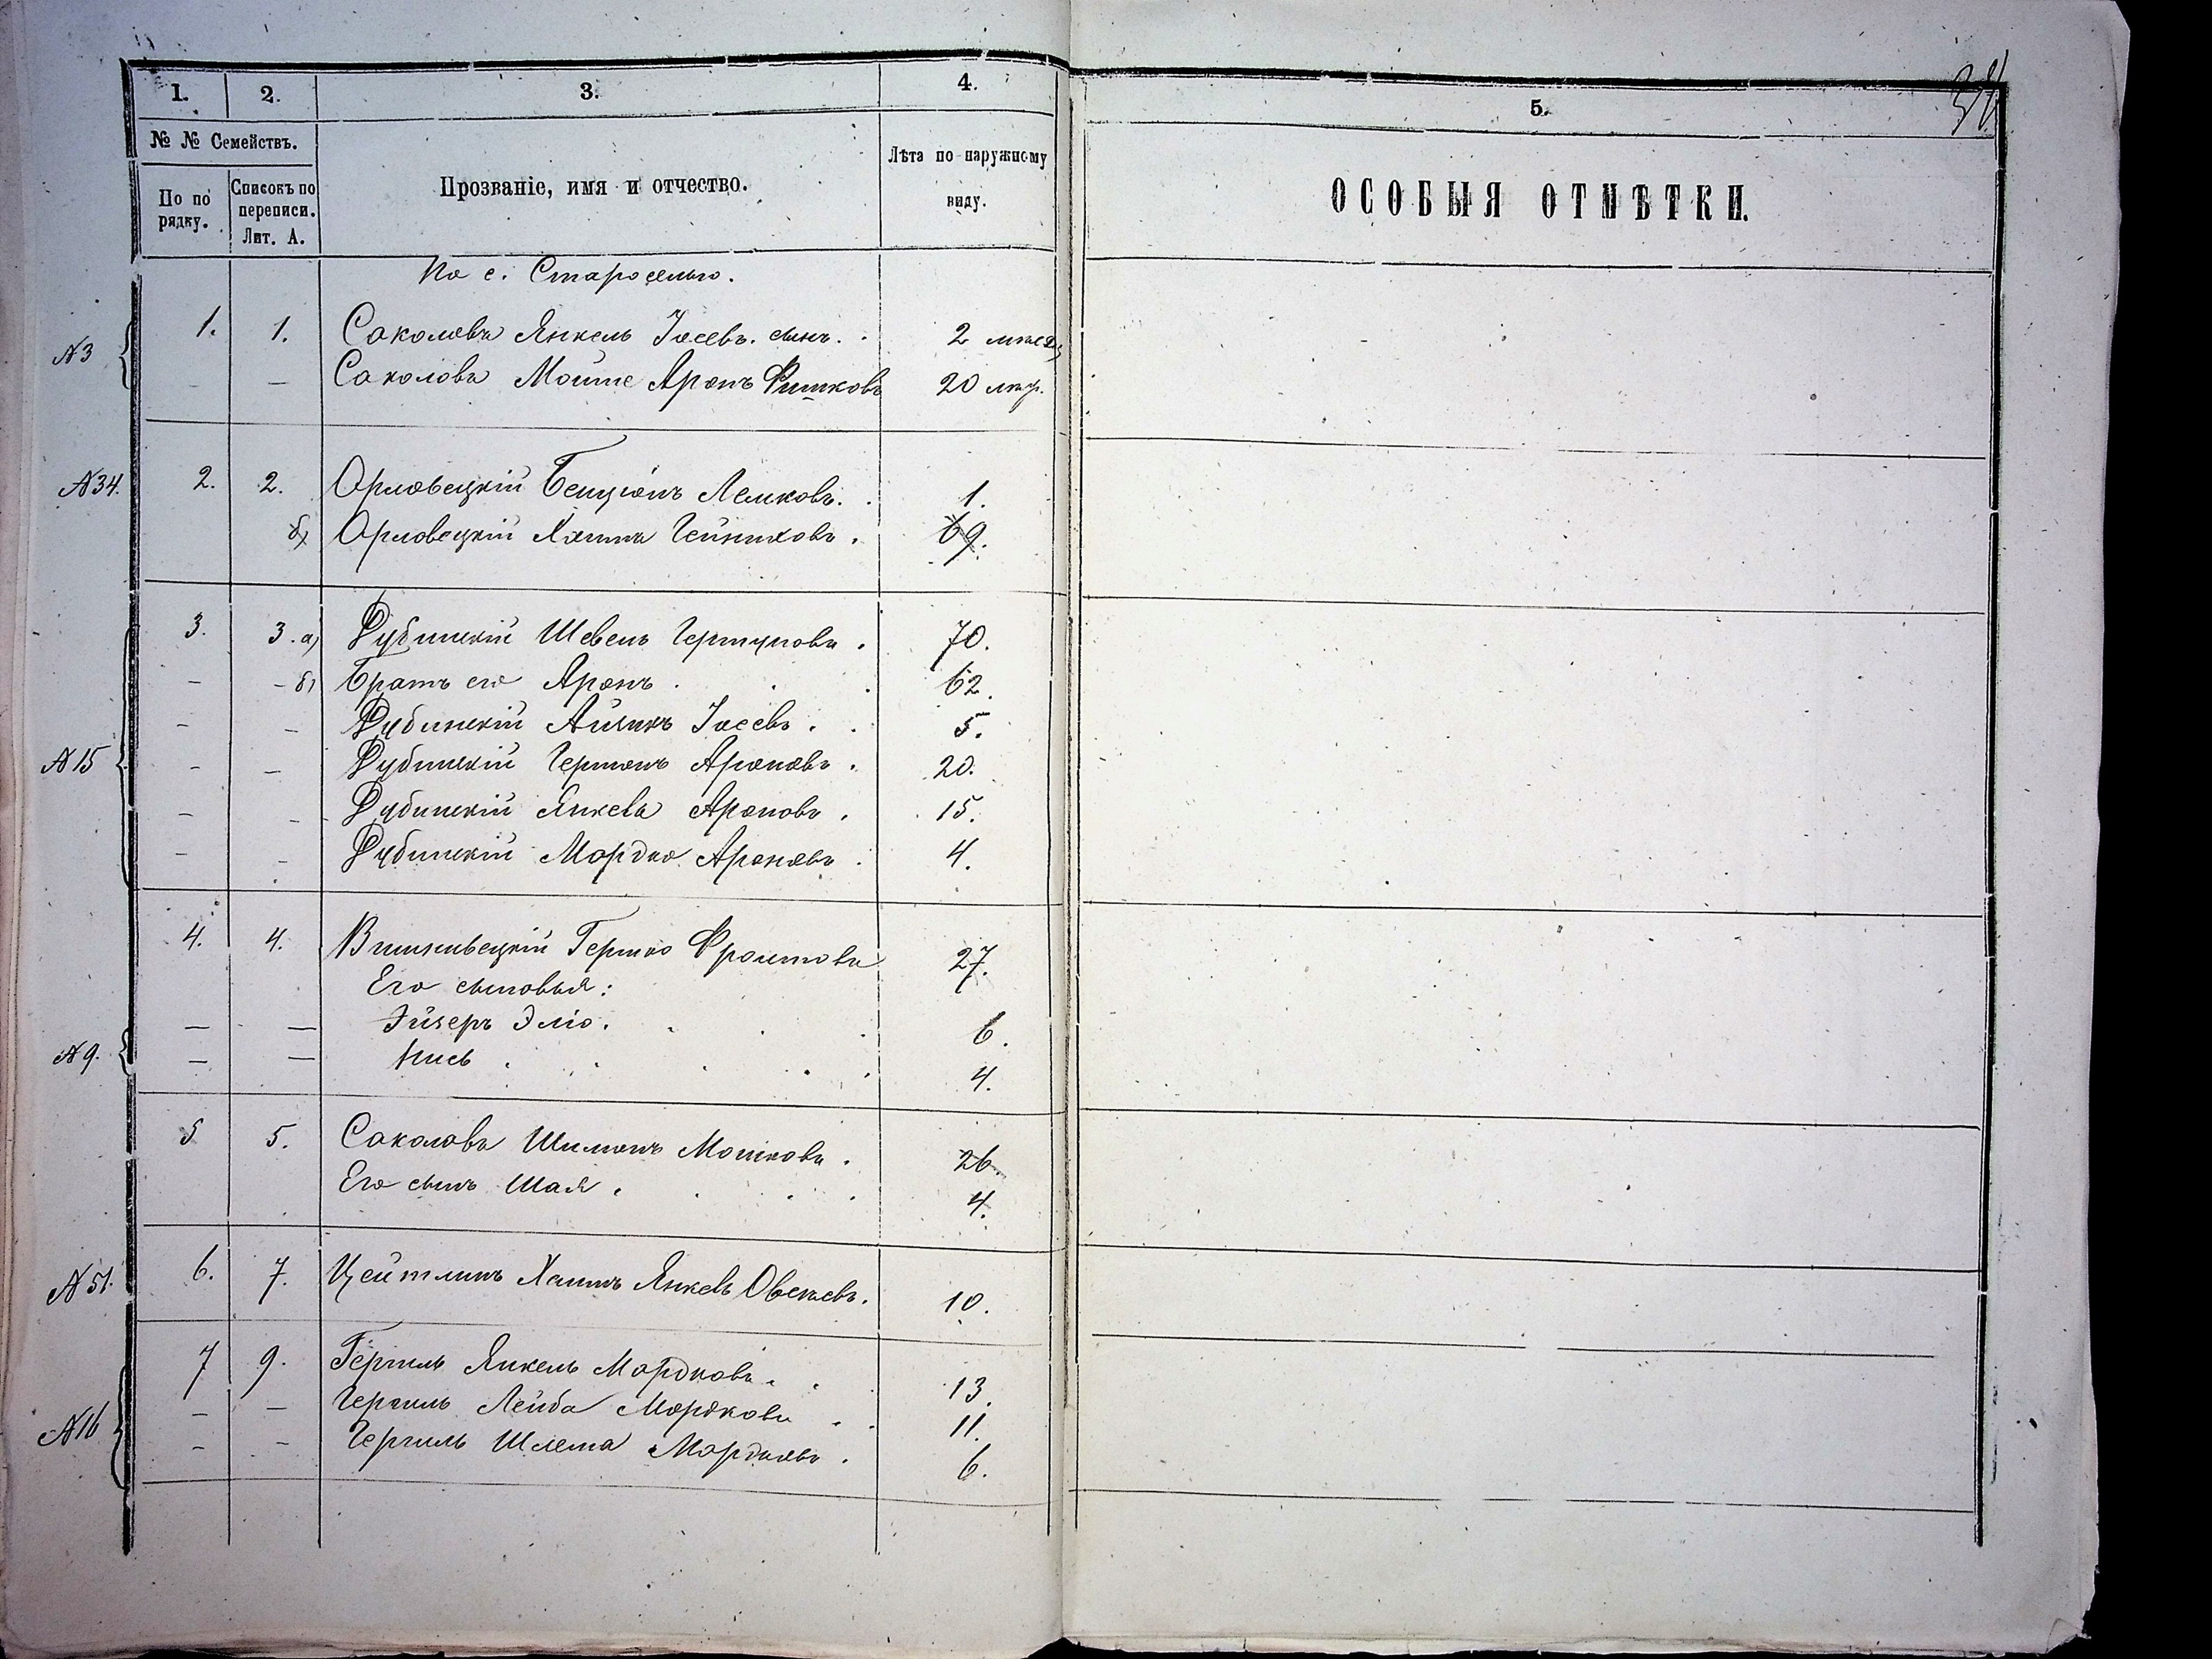 1. 2. 3. 4. 5.
№ № Семействъ.
По по рядку.
Списокъ по переписи. Лит. А.
Прозваніе, имя и отчество.
Лѣта по наружному виду.
ОСОБЫЯ ОТМѢТКИ.
По с. Староселью.
№3 1. 1. Соколовъ Янкель Іосевъ. сынъ. 2
— — Соколовъ Мошке Аронъ Фишковъ 20
№34. 2. 2. Орловецкій Бенціонъ Лемковъ. 1.
б) Орловецкій Хаимъ 69.
3. 3. а) Дубинскій Шевель 70.
— — б) Братъ его Аронъ. 62.
— — Дубинскій Айзикъ Іосевъ. 5.
№15 — — Дубинскій Гершонъ Ароновъ. 20.
— — Дубинскій Янкевъ Ароновъ. 15.
— — Дубинскій Мордко Ароновъ. 4.
4. 4. Вишнивецкій Гершко Фроимовъ 27.
Его сыновья:
— — Эйзеръ Эліо. 6.
№9. — — Нись 4.
5 5. Соколовъ Шимонъ Мошковъ. 26.
Его сынъ Шая. 4.
№51. 6. 7. Цейтлинъ Хаимъ Янкевъ Овсеевъ. 10.
7 9. Гершль Янкель Мордковъ. 13.
№16 — — Гершль Лейба Мордковъ 11.
— — Гершль Шлема Мордковъ. 6.